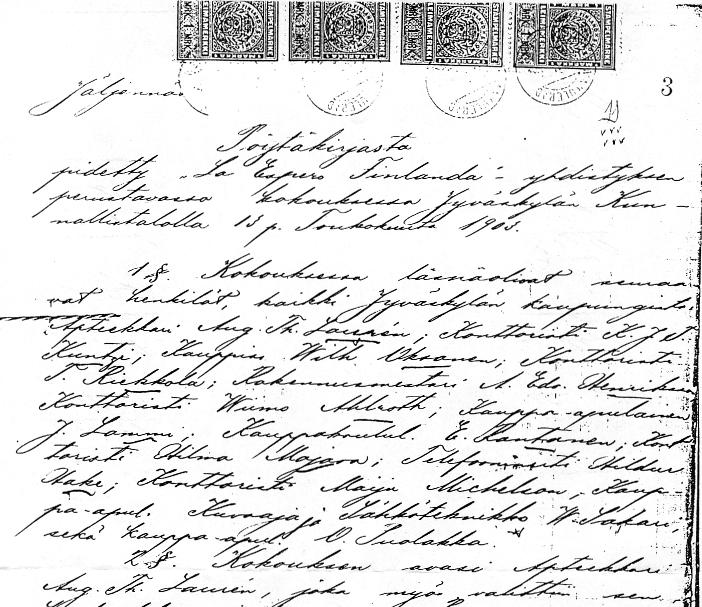 3
Jäljennös
Pöytäkirjasta
pidetty "La Espero Finlanda" - yhdistyksen
perustavassa kokouksessa Jyväskylän Kun-
nallistalolla 13 p. Toukokuuta 1903.
1 §. Kokouksessa läsnäolivat seuraa-
vat henkilöt, kaikki Jyväskylän kaupungista:
Apteekkari Aug. Th. Laurén, Konttoristi K. J. T.
Kuntzi; Kauppias Wilh. Oksanen; Konttoristi
T. Riekkola; Rakennusmestari A. Edv. Henriksson
Konttoristi Wiimo Ahlroth; Kauppa-apulainen
J. Lammi; Kauppakoulul. E. Rantanen; Kont-
toristi Hilma Majava; Telefoonineiti Hildur
Hake; Konttoristi Maiju Michelson, Kaup-
pa-apul. Kuvaaja ja Sähköteknikko W. Sakari,
sekä kauppa-apul. O. Puolakka.
2 §. Kokouksen avasi Apteekkari
Aug. Th. Laurén, joka myös valittiin sen